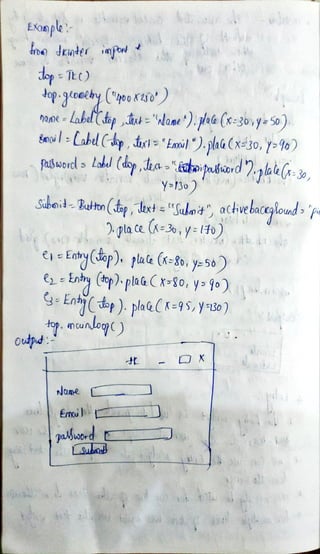 Example:-
from tkinter import *
top = Tk()
top.geometry("400x250")
name = Label(top, text = "Name").place(x=30, y=50)
email = Label(top, text = "Email").place(x=30, y=90)
password = Label(top, text = "password").place(x=30,
y=130)
Submit = Button(top, text = "Submit", activebackground = "
).place(x=30, y=170)
e1 = Entry(top).place(x=80, y=50)
e2 = Entry(top).place(x=80, y=90)
e3 = Entry(top).place(x=95, y=130)
top.mainloop()
output:-
tk - X
Name
Email
password
submit